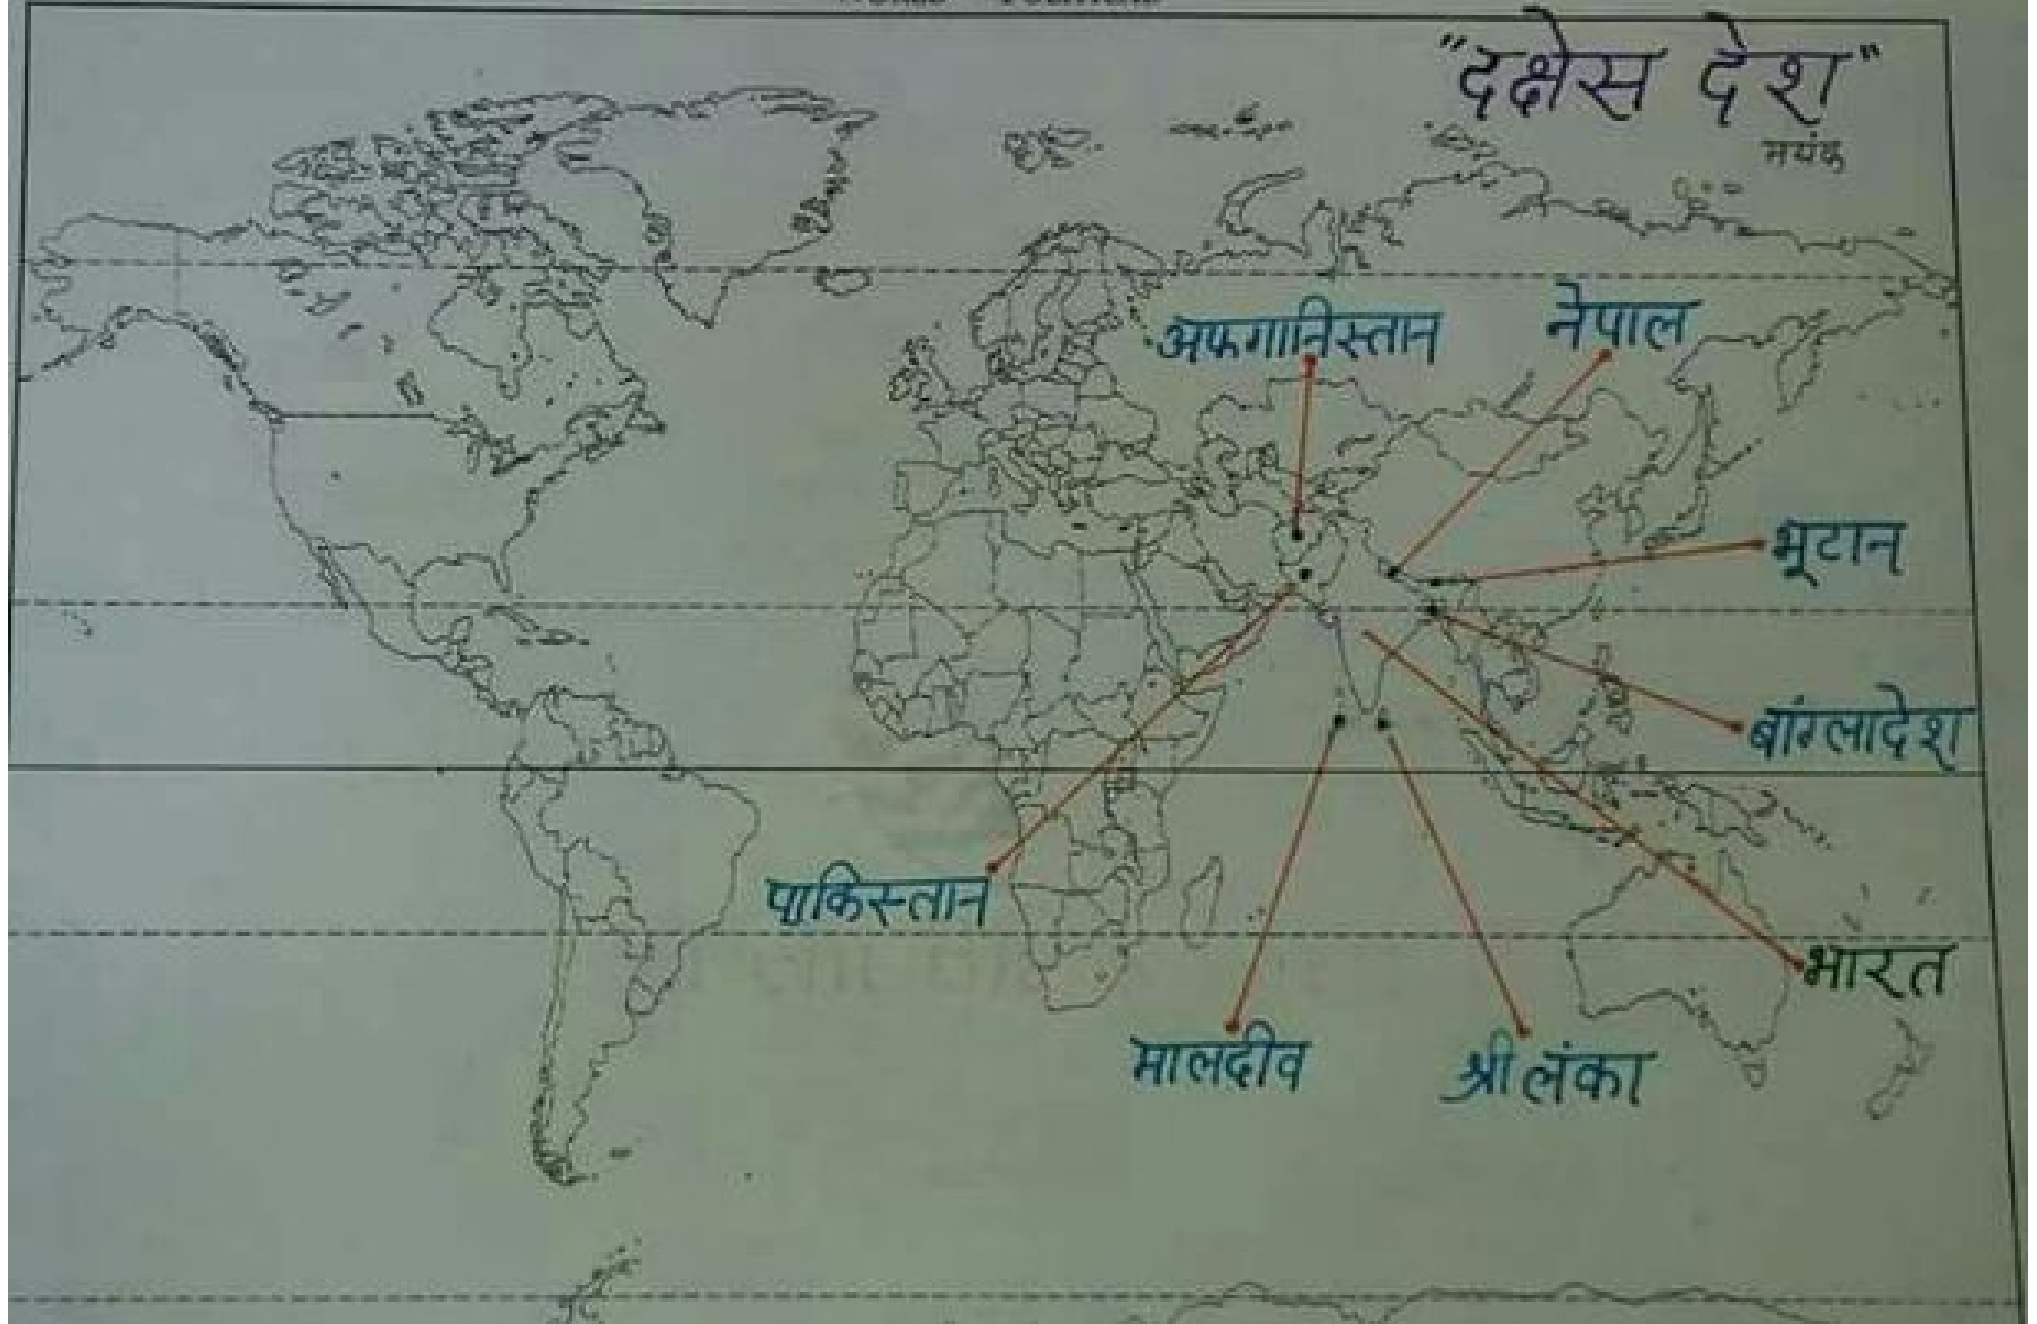 "दक्षेस देश"
मयंक
अफगानिस्तान
नेपाल
भूटान
बांग्लादेश
पाकिस्तान
भारत
मालदीव
श्रीलंका